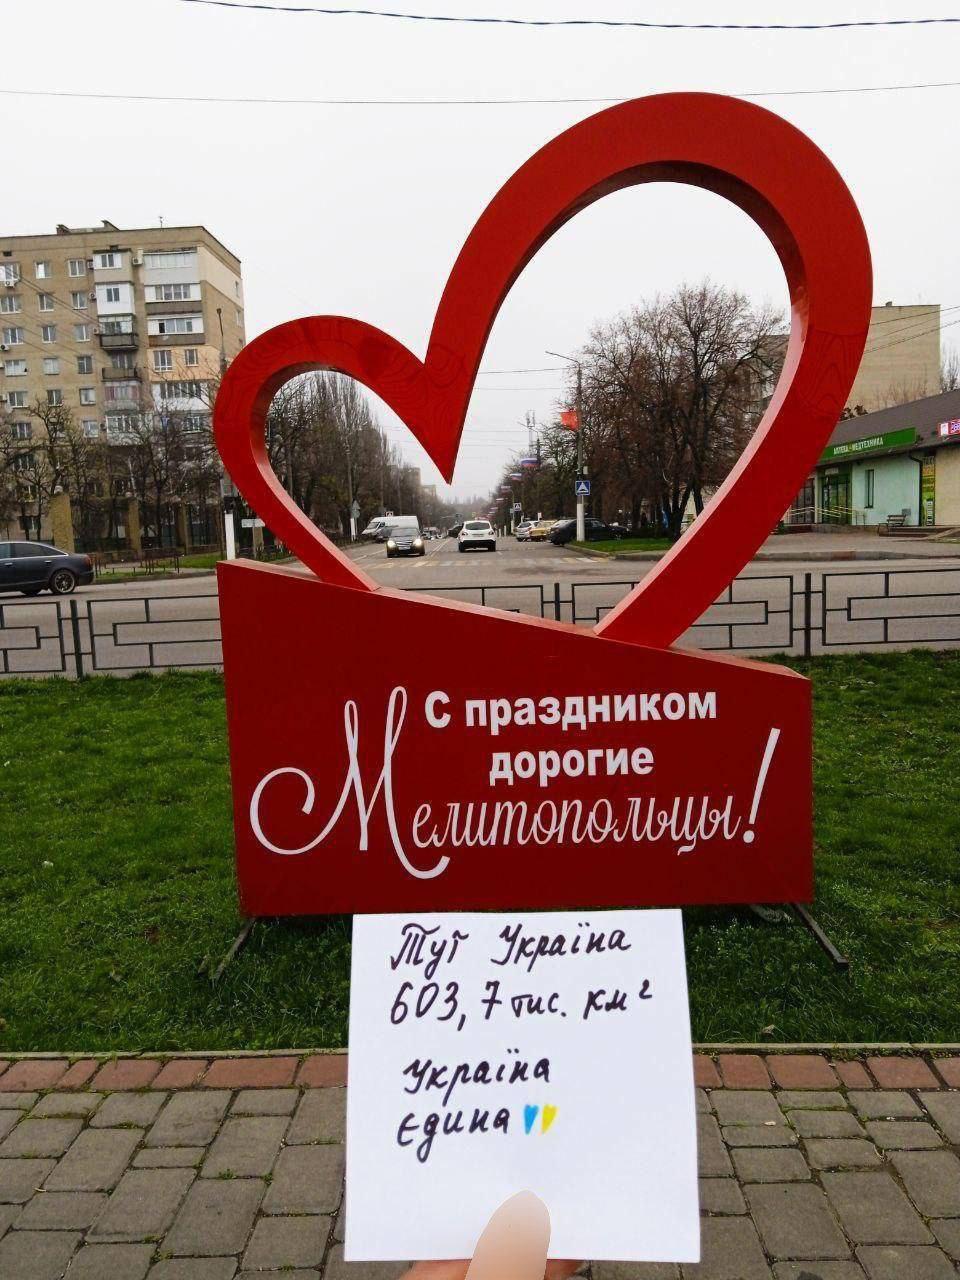 АПТЕКА МЕДТЕХНИКА
С праздником
дорогие
Мелитопольцы!
Тут Україна
603,7 тис. км²
Україна
Єдина